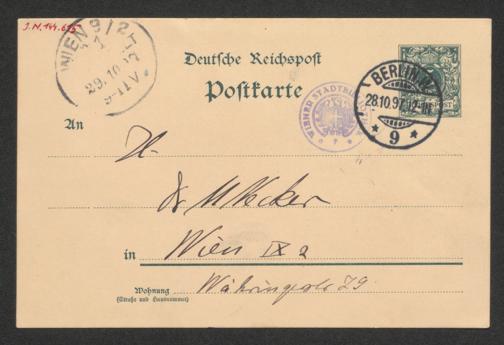 J.N. 144.635
WIEN 9/2
29.10.97
9-11V
Deutsche Reichspost
Postkarte
BERLIN W.
28.10.97. 12-1N.
* 9 *
WIENER STADTBIBLIOTHEK
An
H
Dr M Necker
in Wien IX 2
Wohnung Währingerstr 29
(Straße und Hausnummer)